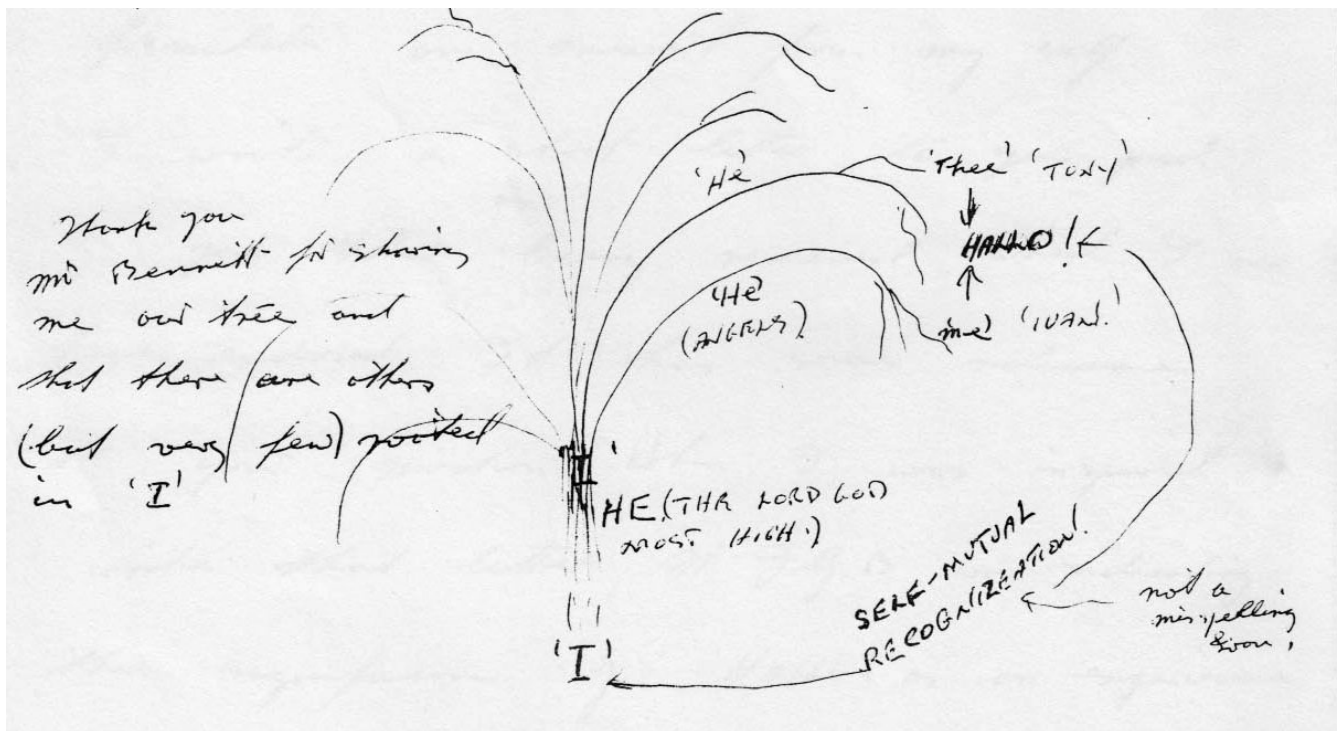 Thank you
Mr Bennett for showing
me our tree and
that there are others
(but very few) rooted
in 'I'
'He'
'He'
(ANGERNS)
'Thee' 'TONY'
HALLO!
'me' 'IVAN.'
'I'
HE (THR LORD GOD
MOST HIGH.)
'I'
SELF-MUTUAL
RECOGNIZEATION!
not a
misspelling